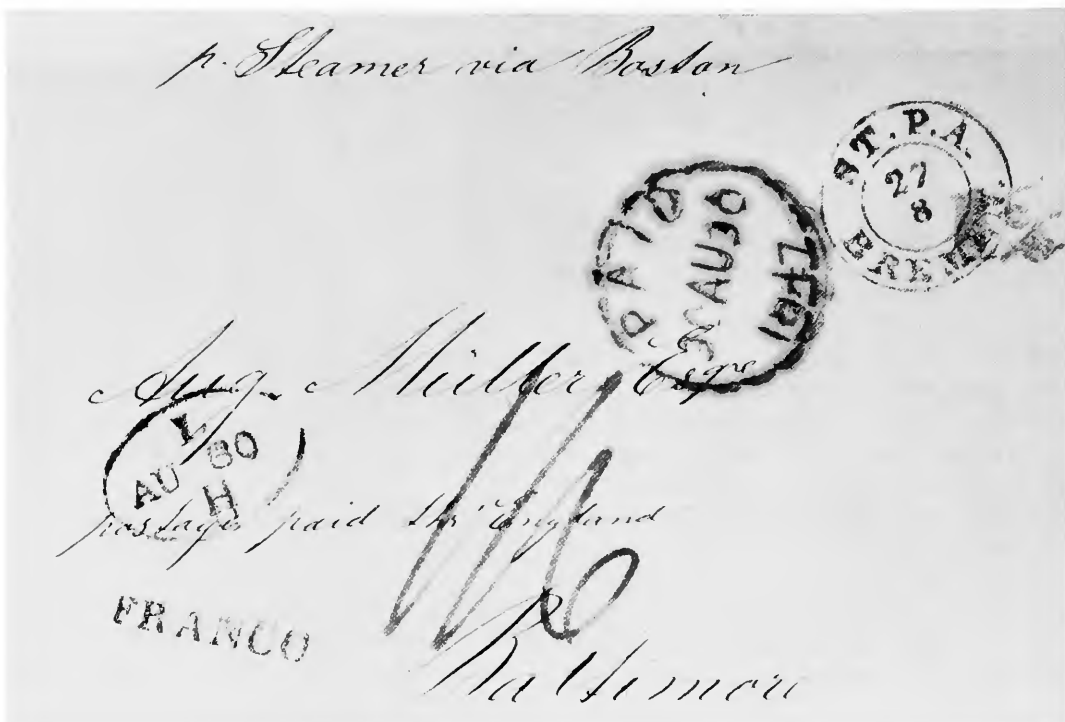 p. Steamer via Boston
ST. P. A.
27
8
BREMEN
PAID
AU 30
1847
Aug. Müller Esqre
L
AU 30
H
postage paid thr England
1/6
FRANCO
Baltimore